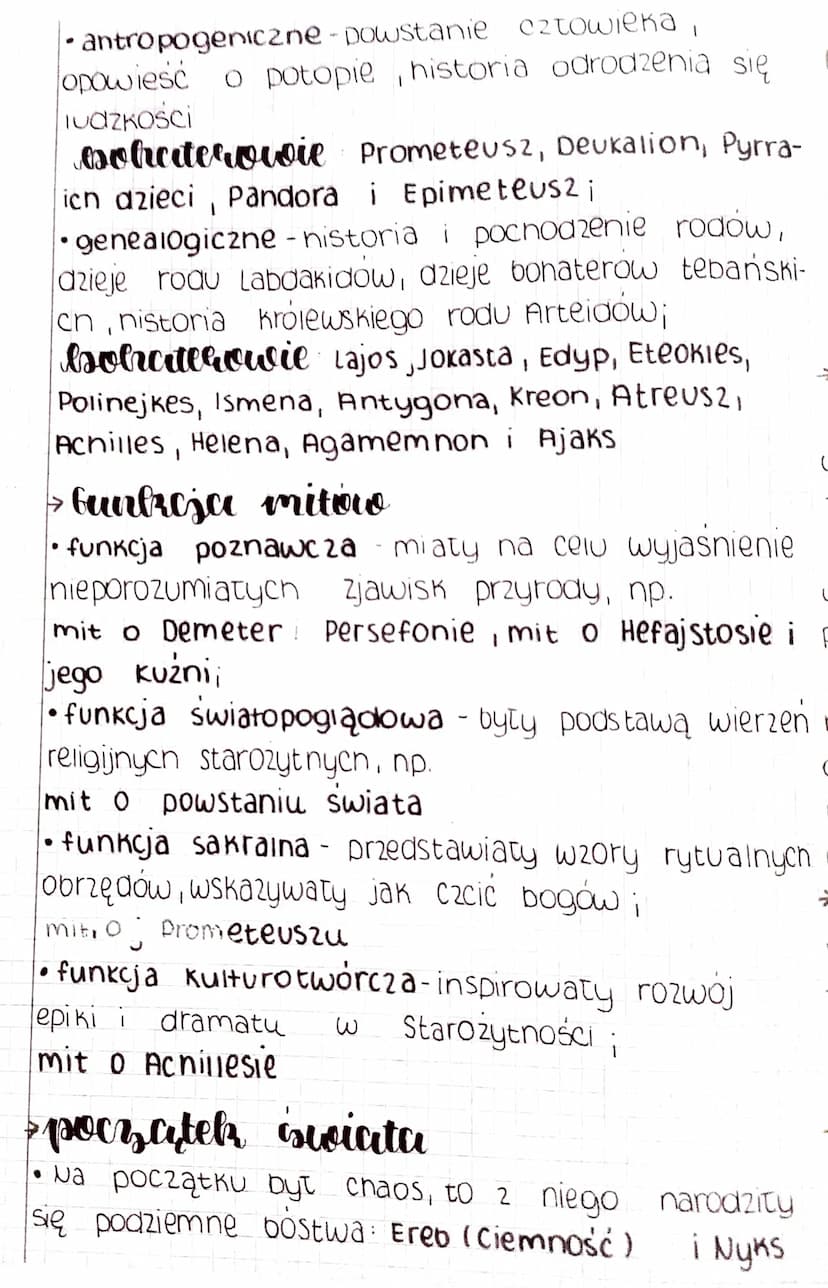 • antropogeniczne - powstanie człowieka,
opowieść o potopie, historia odrodzenia się
ludzkości
bohaterowie: Prometeusz, Deukalion, Pyrra-
ich dzieci, Pandora i Epimeteusz;
• genealogiczne - historia i pochodzenie rodów,
dzieje rodu Labdakidów, dzieje bohaterów tebański-
ch, historia królewskiego rodu Arteidów;
bohaterowie: Lajos, Jokasta, Edyp, Eteokles,
Polinejkes, Ismena, Antygona, Kreon, Atreusz,
Achilles, Helena, Agamemnon i Ajaks
→ funkcja mitów
• funkcja poznawcza - miały na celu wyjaśnienie
nieporozumiałych zjawisk przyrody, np.
mit o Demeter i Persefonie, mit o Hefajstosie i
jego kuźni;
• funkcja światopoglądowa - były podstawą wierzeń
religijnych starożytnych, np.
mit o powstaniu świata
• funkcja sakralna - przedstawiały wzory rytualnych
obrzędów, wskazywały jak czcić bogów;
mit o Prometeuszu
• funkcja kulturotwórcza - inspirowały rozwój
epiki i dramatu w Starożytności;
mit o Achillesie
→ początek świata
• Na początku był chaos, to z niego narodziły
się podziemne bóstwa: Ereb (Ciemność) i Nyks